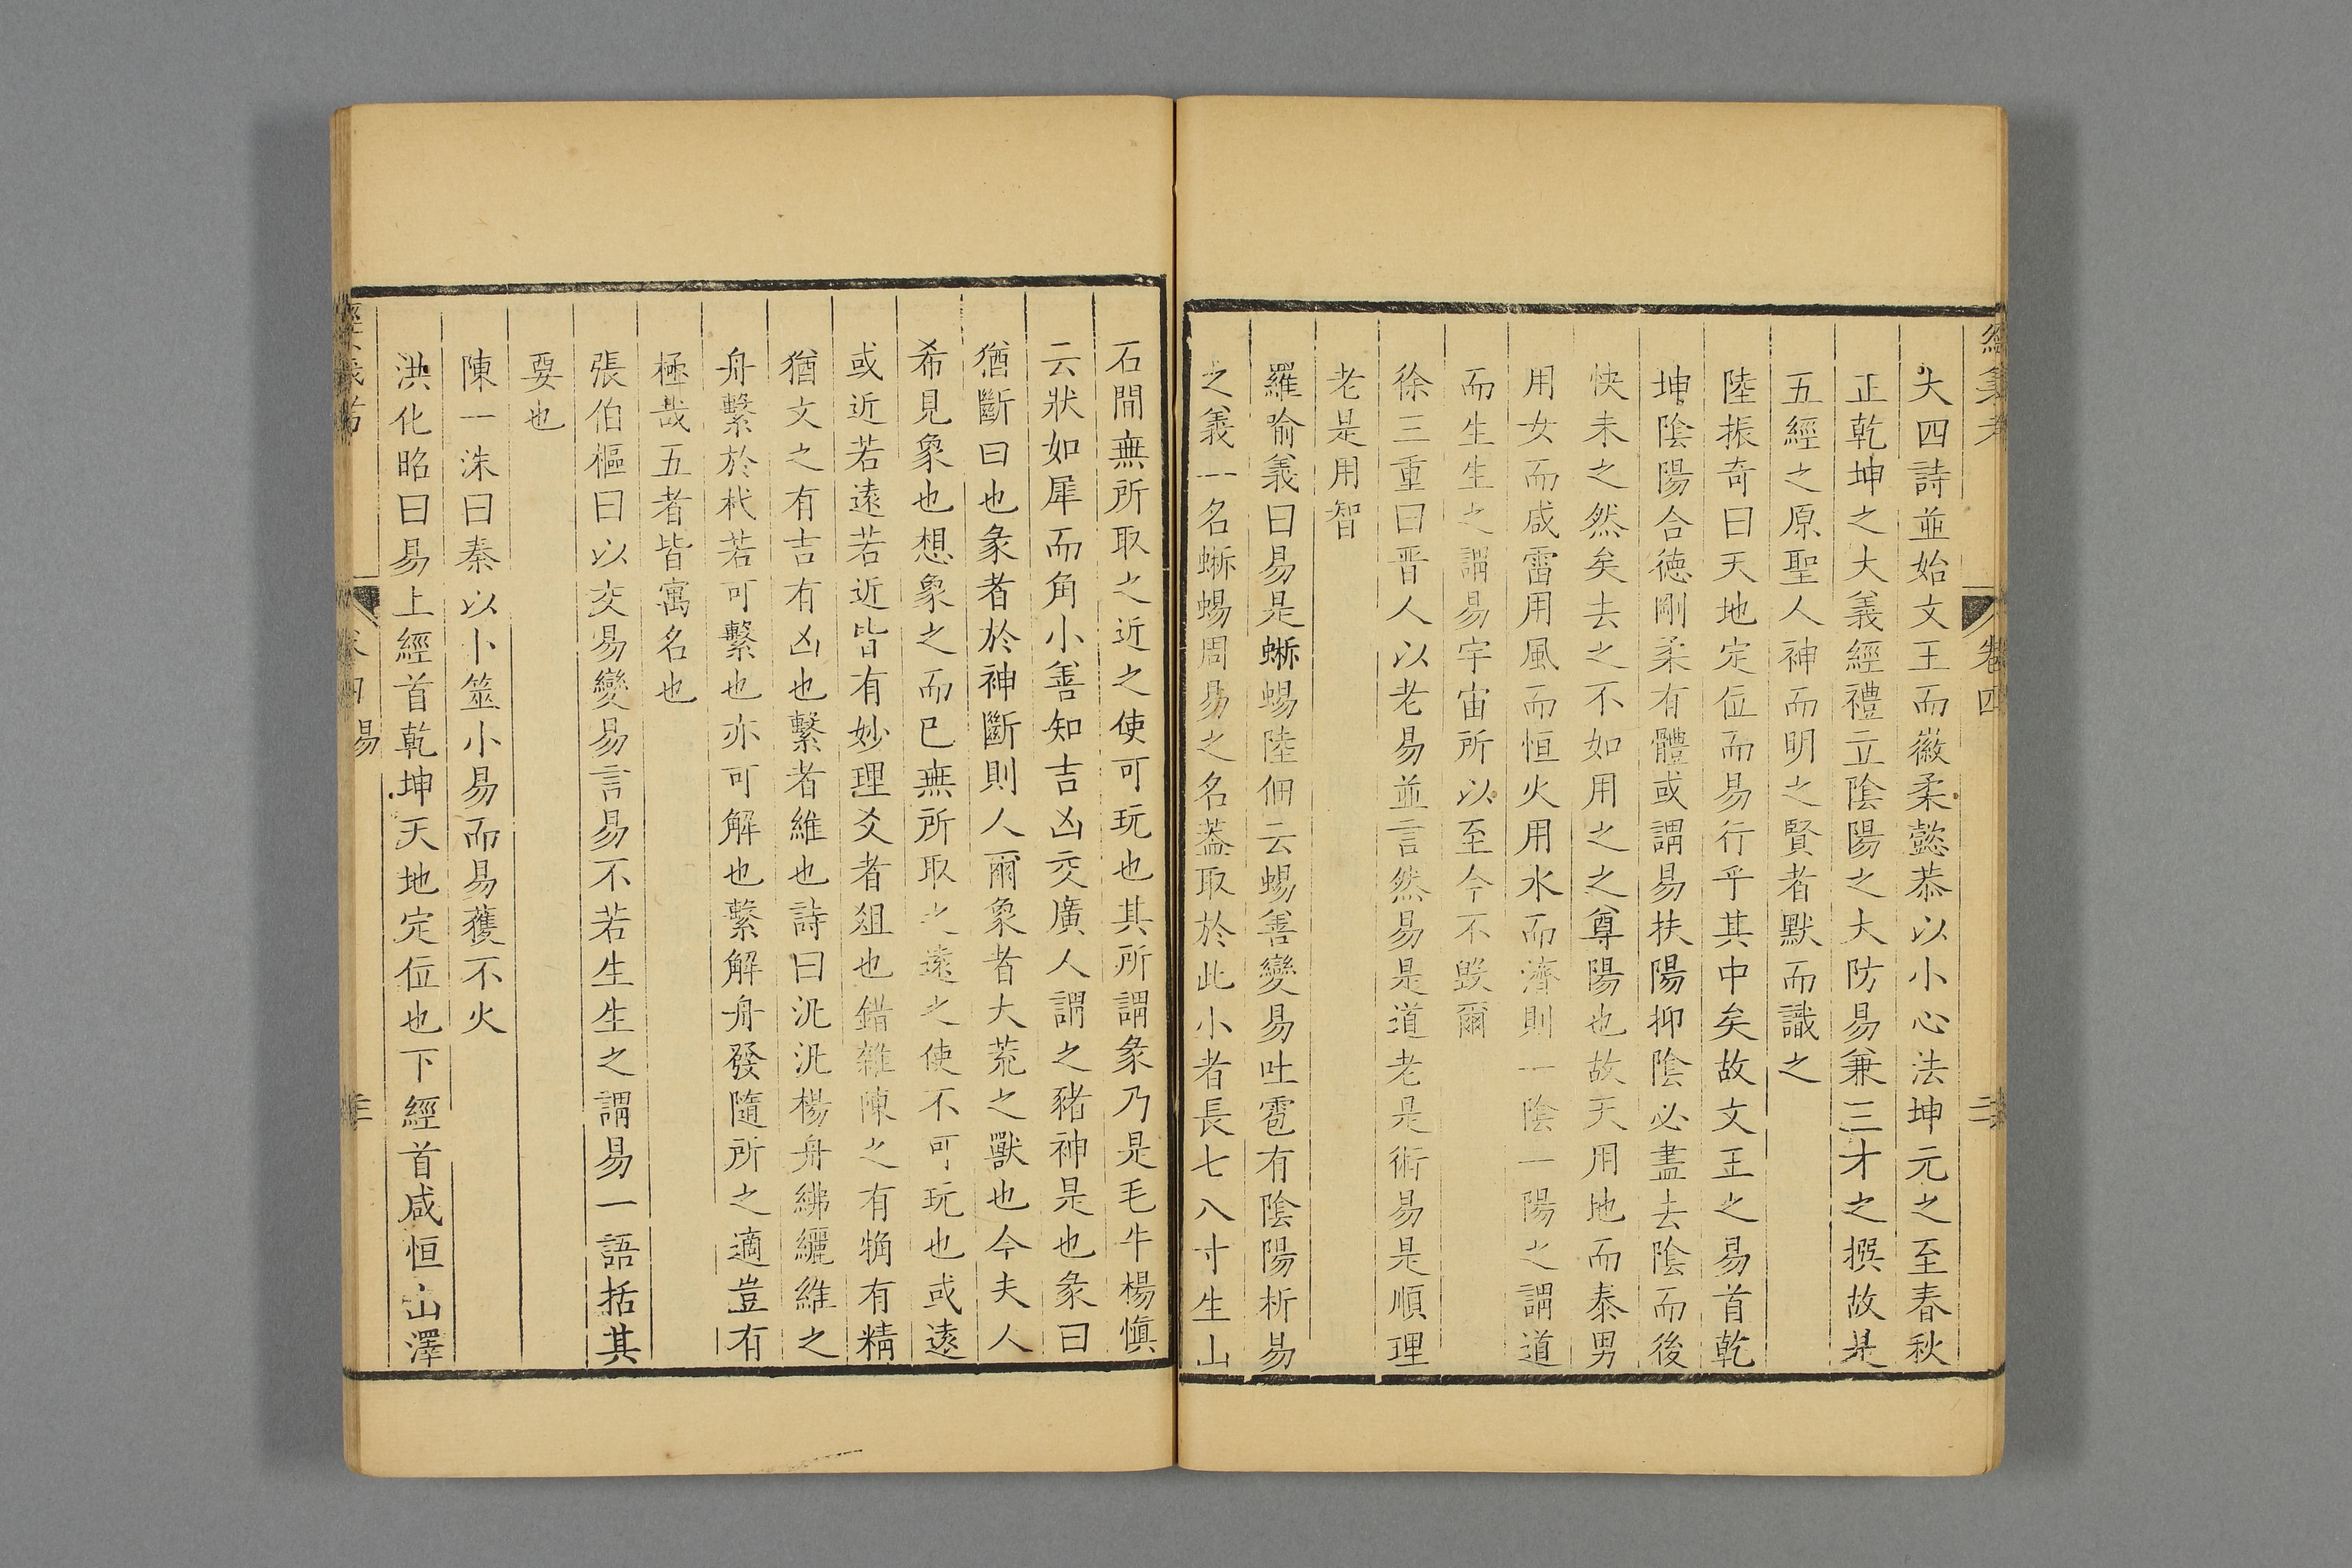 大四詩並始文王而徽柔懿恭以小心法坤元之至春秋
正乾坤之大義經禮立陰陽之大防易兼三才之撰故是
五經之原聖人神而明之賢者默而識之
陸振奇曰天地定位而易行乎其中矣故文王之易首乾
坤陰陽合德剛柔有體或謂易扶陽抑陰必盡去陰而後
快未之然矣去之不如用之之尊陽也故天用地而泰男
用女而咸雷用風而恒火用水而濟則一陰一陽之謂道
而生生之謂易宇宙所以至今不毀爾
徐三重曰晋人以老易並言然易是道老是術易是順理
老是用智
羅喻義曰易是蜥蜴陸佃云蜴善變易吐雹有陰陽析易
之義一名蜥蜴周易之名葢取於此小者長七八寸生山
石間無所取之近之使可玩也其所謂彖乃是毛牛楊慎
云狀如犀而角小善知吉凶交廣人謂之豬神是也彖曰
猶斷曰也彖者於神斷則人爾象者大荒之獸也今夫人
希見象也想象之而已無所取之遠之使不可玩也或遠
或近若遠若近皆有妙理爻者俎也錯雜陳之有觕有精
猶文之有吉有凶也繫者維也詩曰汎汎楊舟紼纚維之
舟繫於杙若可繫也亦可解也繫解舟發隨所之適豈有
極哉五者皆寓名也
張伯樞曰以交易變易言易不若生生之謂易一語括其
要也
陳一洙曰秦以卜筮小易而易獲不火
洪化昭曰易上經首乾坤天地定位也下經首咸恒山澤
卷四
易